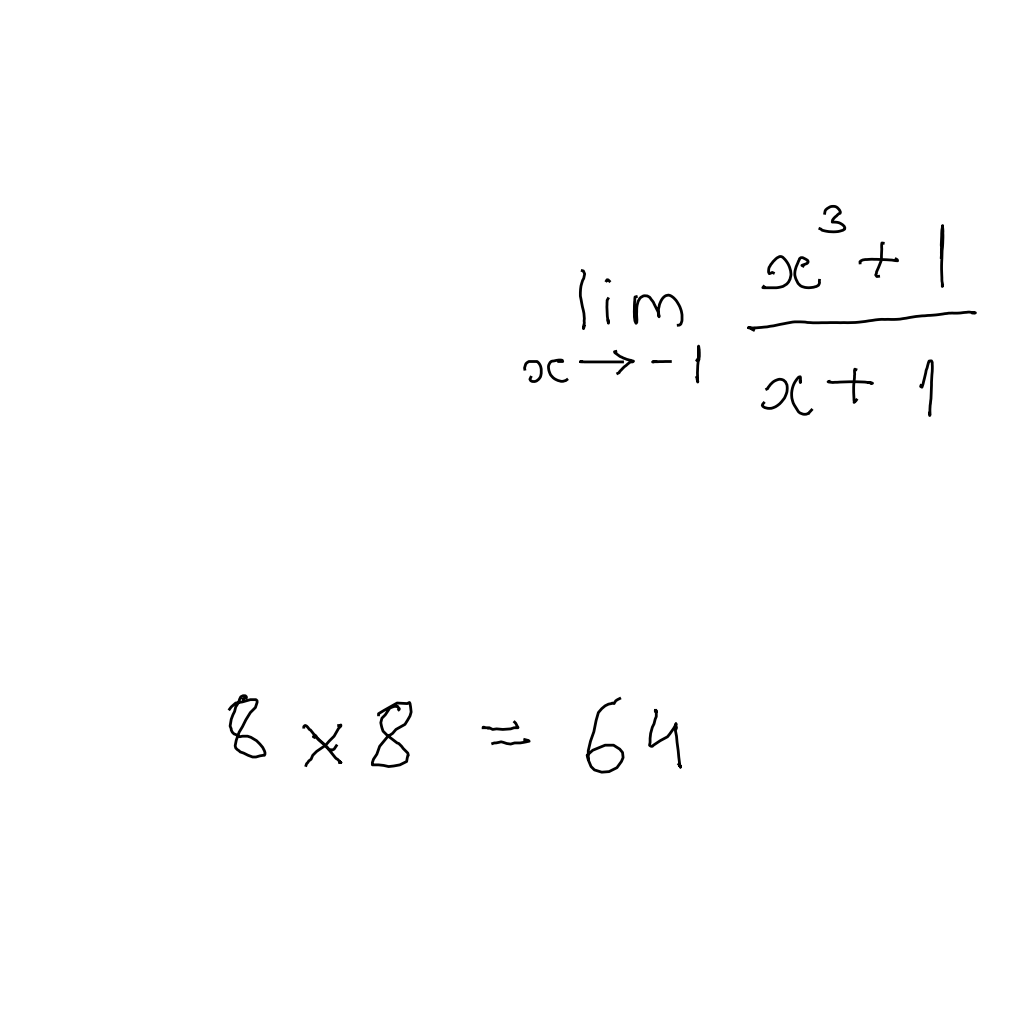 lim x→-1 (x³ + 1)/(x + 1)
8 × 8 = 64